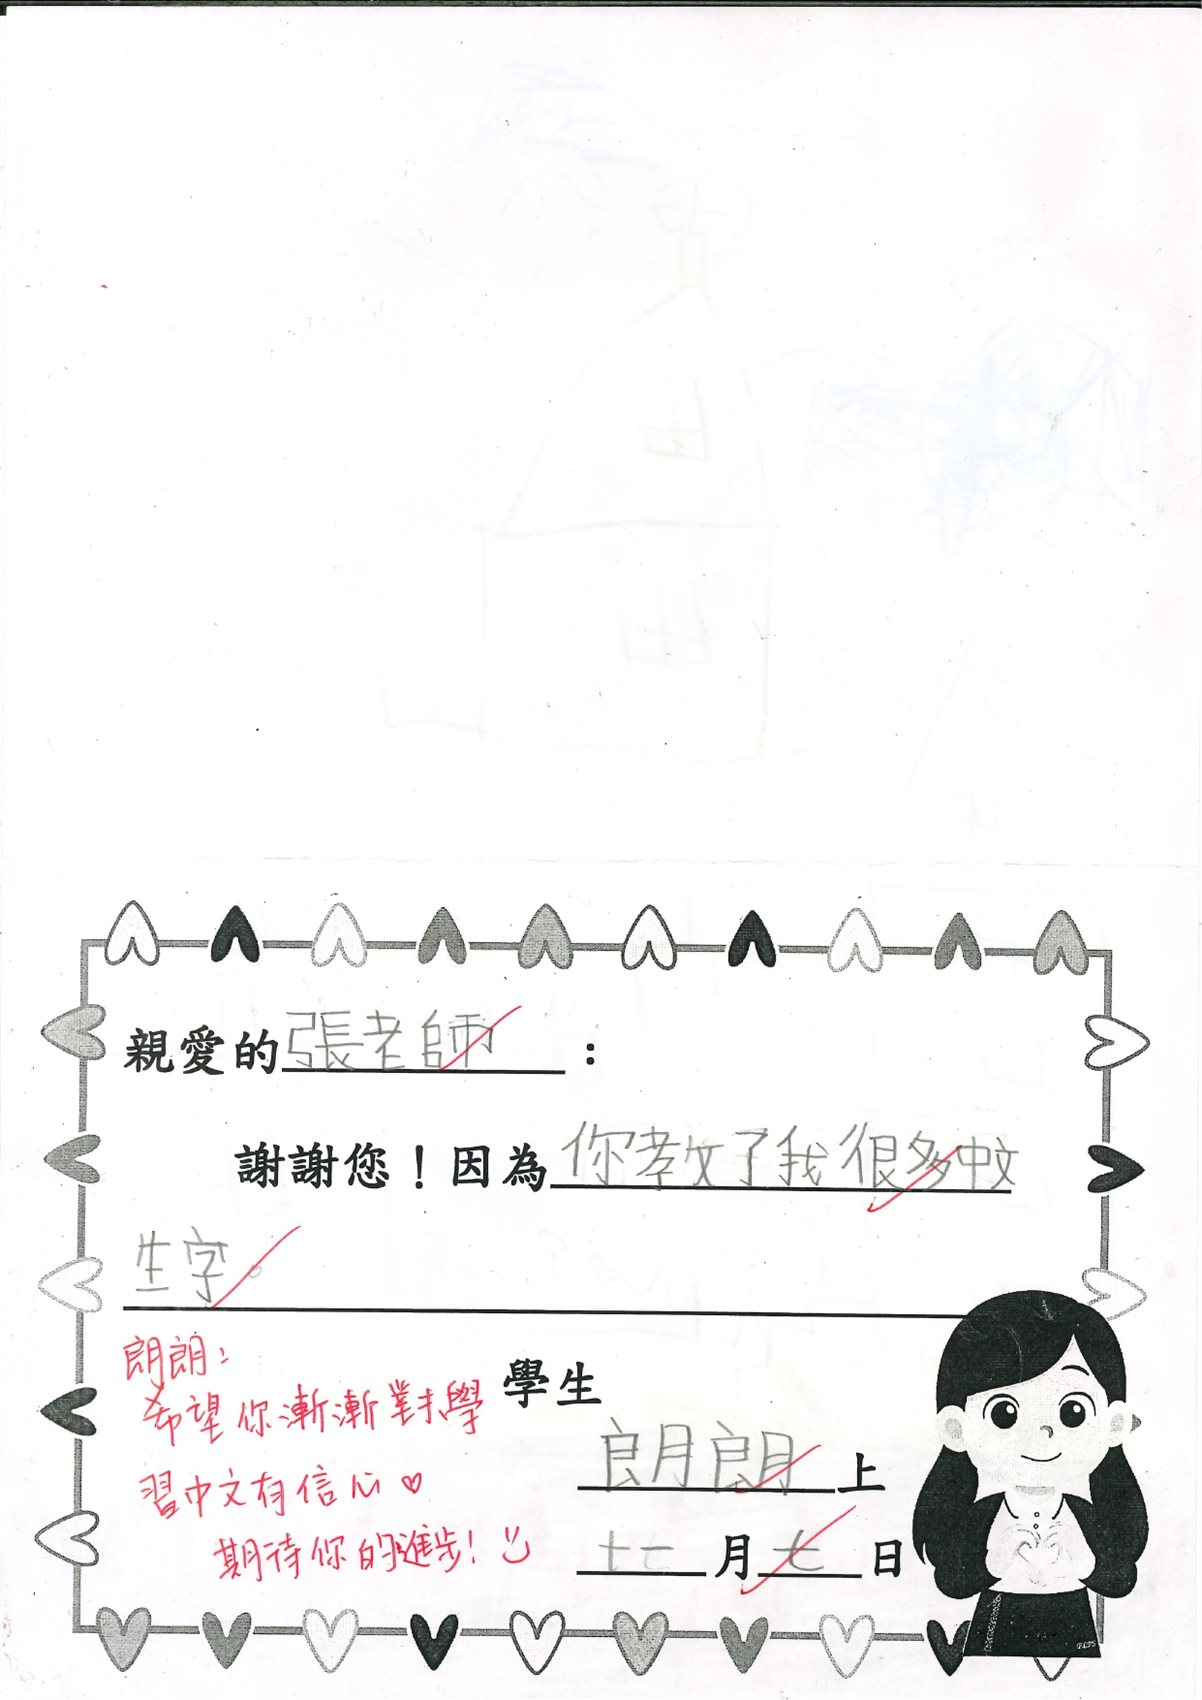 親愛的張老師：
謝謝您！因為你教了我很多中文
生字。
朗朗：
希望你漸漸對學
習中文有信心♡
期待你的進步！
學生
朗朗上
十一月七日
PLPS